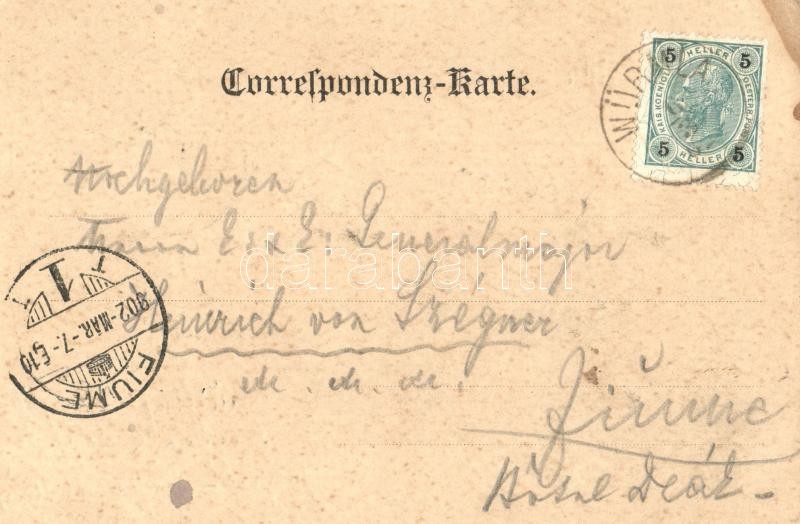 Correspondenz-Karte.
5 HELLER 5
KAIS. KOENIGL. OESTERR. POST
5 HELLER 5
Hochgeboren
Herrn E. & E. Generalmajor
Heinrich von
etc. etc. etc.
Fiume
Hôtel Deák
FIUME
902 MAR.-7.
1
darabanth